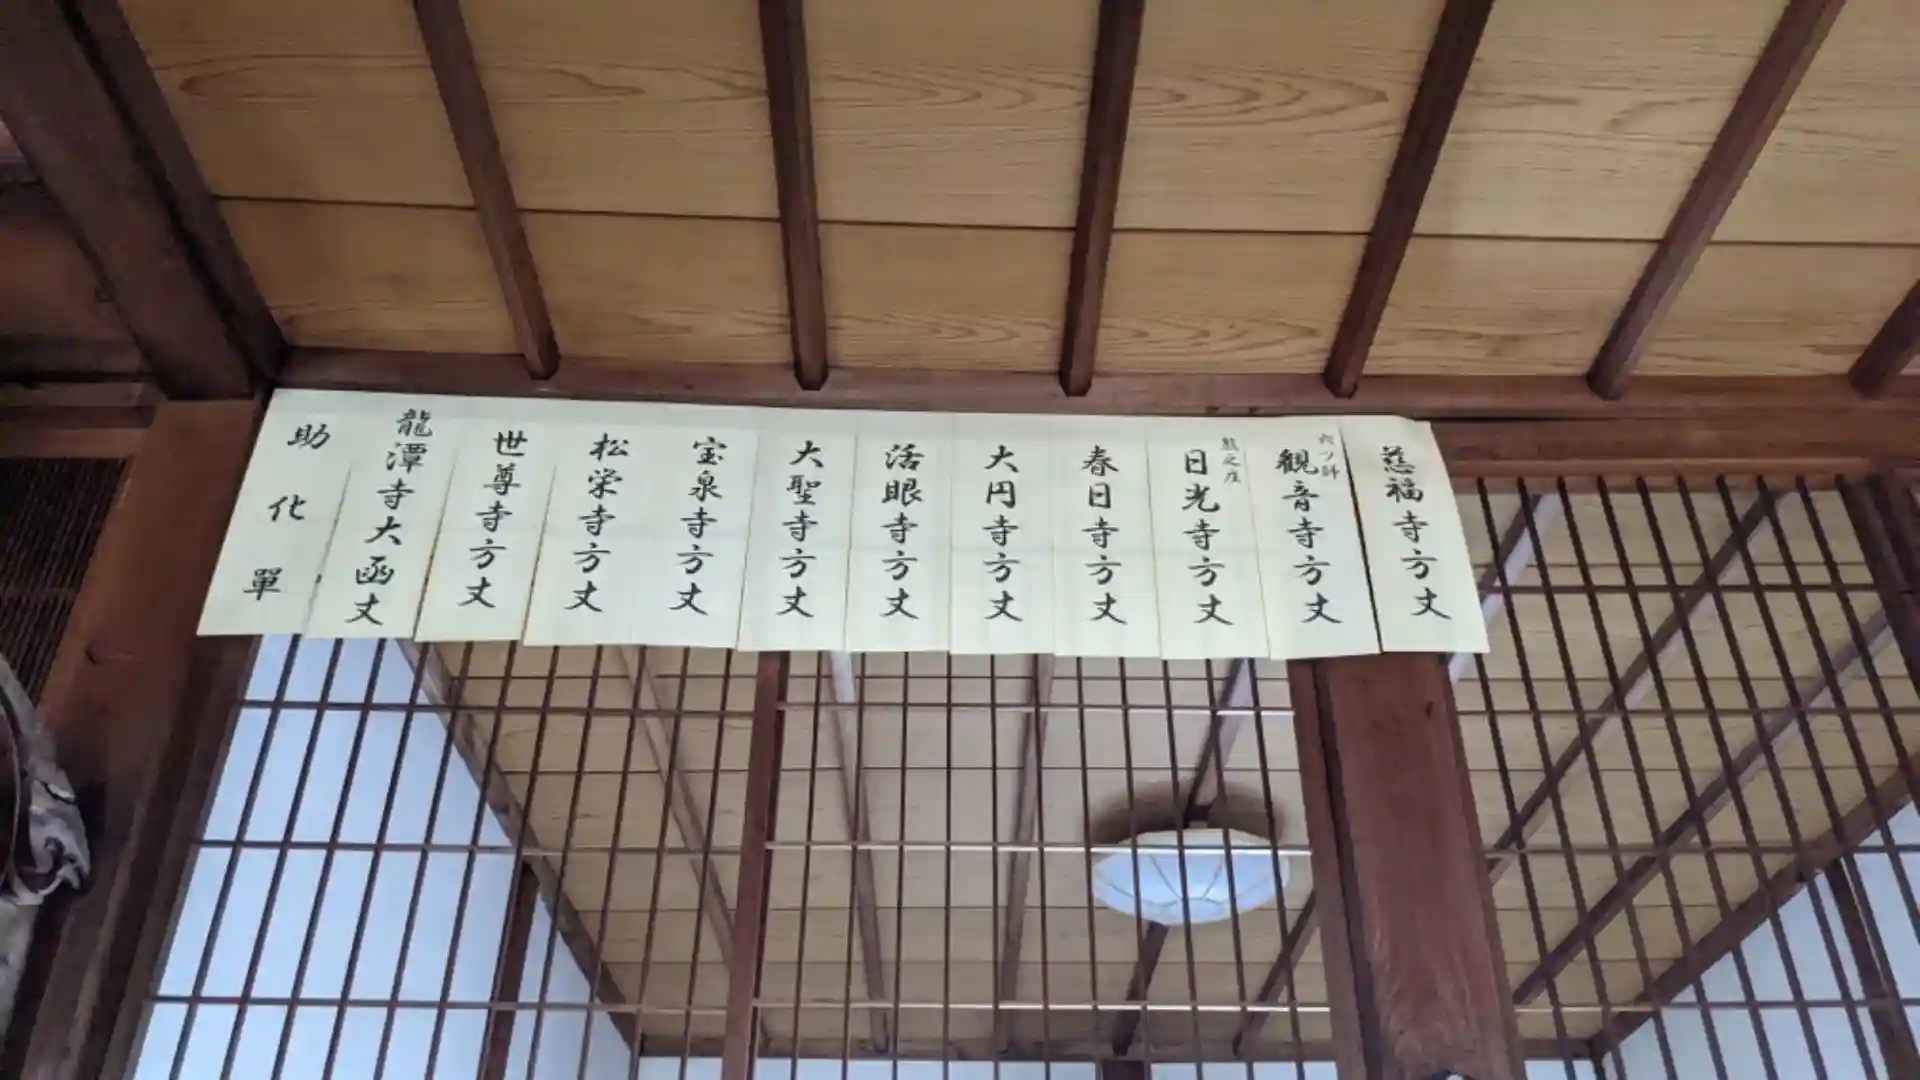 助化單
龍潭寺大函丈
世尊寺方丈
松栄寺方丈
宝泉寺方丈
大聖寺方丈
活眼寺方丈
大円寺方丈
春日寺方丈
熊之庄
日光寺方丈
六ツ師
観音寺方丈
慈福寺方丈